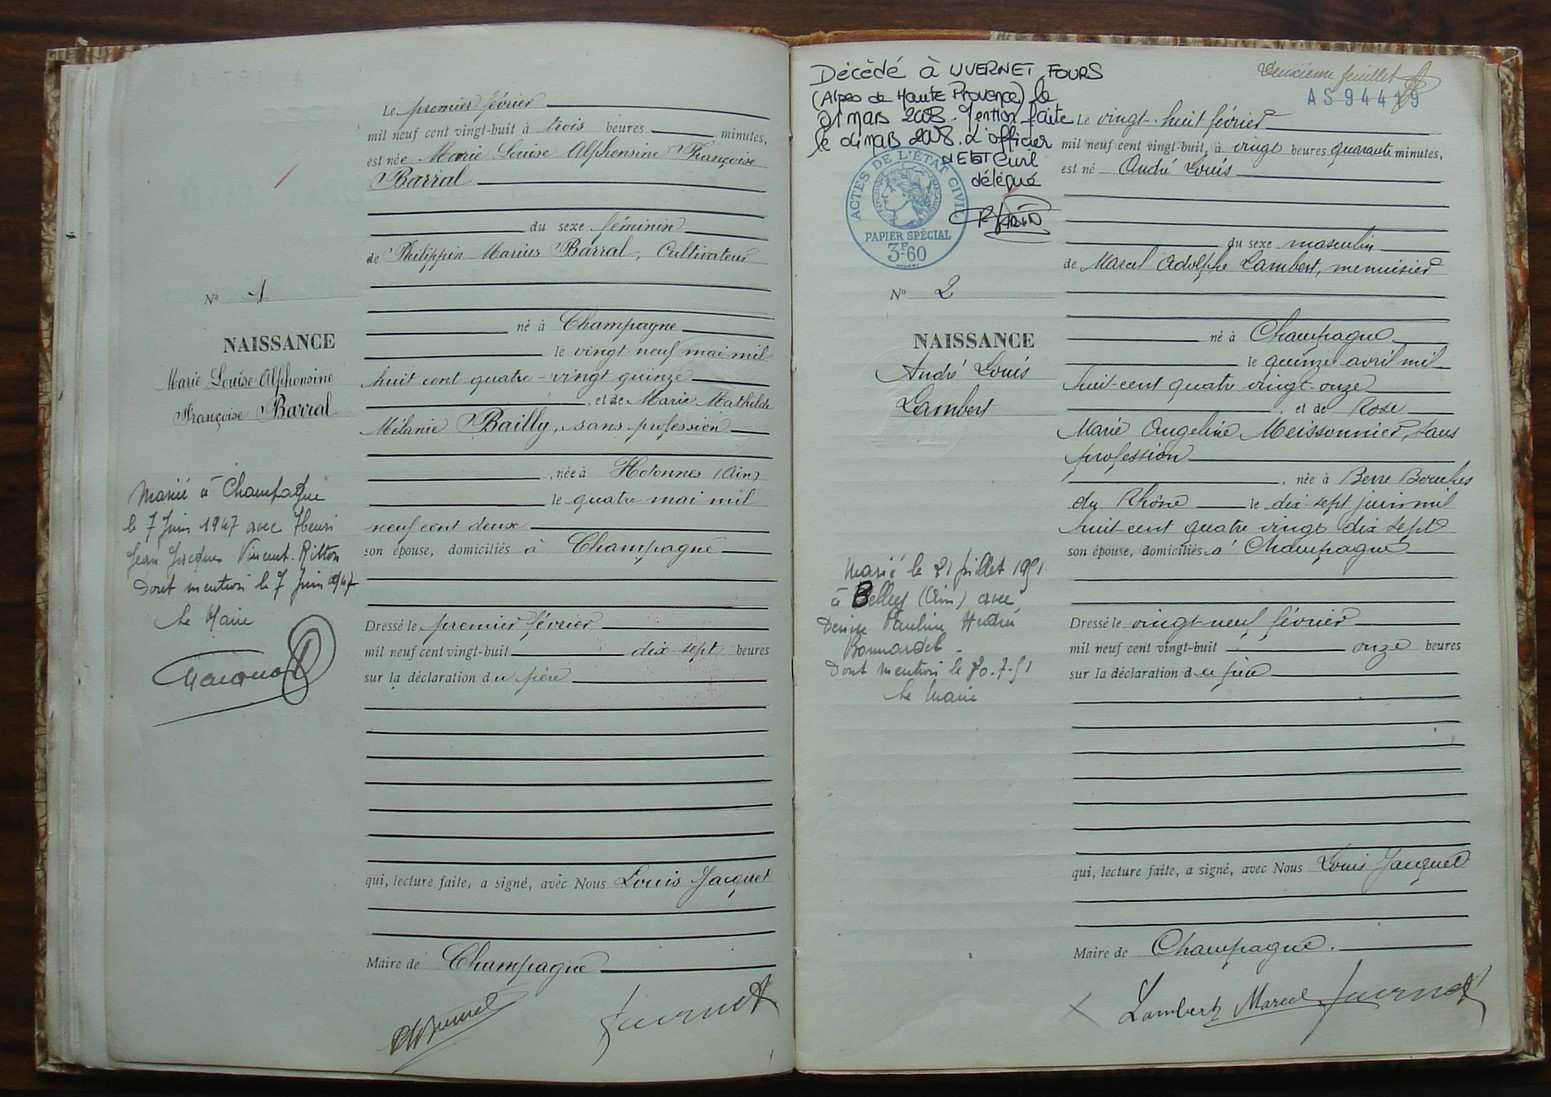 Le premier février
mil neuf cent vingt-huit à trois heures minutes,
est née Marie Louise Alphonsine Françoise
Barral
du sexe féminin
de Philippin Marius Barral, Cultivateur
No 1
né à Champagne
NAISSANCE
le vingt neuf mai mil
Marie Louise Alphonsine
Françoise Barral
huit cent quatre-vingt quinze
, et de Marie Mathilde
Mélanie Bailly, sans profession
, née à Hotonnes (Ain)
le quatre mai mil
neuf cent deux
son épouse, domiciliés à Champagne
Marié à Champagne
le 7 Juin 1947 avec Henri
Jean Jacques Vincent Ritton
Dont mention le 7 Juin 1947
Le Maire
Dressé le premier février
mil neuf cent vingt-huit dix sept heures
sur la déclaration du père
qui, lecture faite, a signé, avec Nous Louis Jacquet
Maire de Champagne
Deuxième feuillet
AS94419
Décédé à UVERNET FOURS
(Alpes de Haute Provence) le
01 mars 2008. Mention faite
le 04 mars 2008. L'officier
d'Etat Civil
délégué
ACTES DE L'ÉTAT CIVIL
PAPIER SPÉCIAL
3F.60
Le vingt-huit février
mil neuf cent vingt-huit, à vingt heures quarante minutes,
est né André Louis
du sexe masculin
de Marcel Adolphe Lambert, menuisier
No 2
né à Champagne
NAISSANCE
André Louis
Lambert
le quinze avril mil
huit cent quatre vingt onze
, et de Rose
Marie Angeline Meissonnier, sans
profession
, née à Berre Bouches
du Rhône le dix sept juin mil
huit cent quatre vingt dix sept
son épouse, domiciliés à Champagne
Marié le 21 juillet 1951
à Belley (Ain) avec
Denise Pauline
Bonnardel
Dont mention le 30.7.51
Le Maire
Dressé le vingt neuf février
mil neuf cent vingt-huit onze heures
sur la déclaration du père
qui, lecture faite, a signé, avec Nous Louis Jacquet
Maire de Champagne.
Lambert Marcel